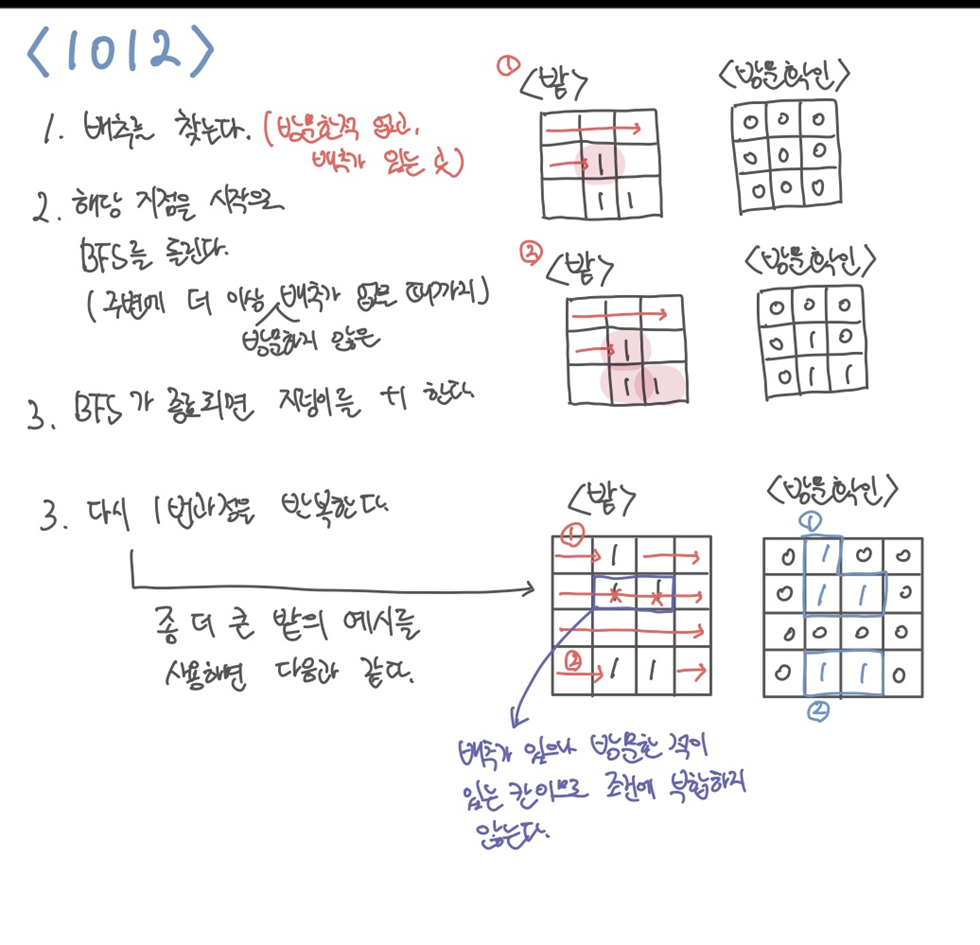 <1012>
1. 배추를 찾는다. (방문한적 없고,
배추가 있는 곳)
2. 해당 지점을 시작으로
BFS를 돌린다.
(주변에 더 이상 배추가 없을 때까지)
방문하지 않은
3. BFS가 종료되면 지렁이를 +1 한다.
3. 다시 1번과정을 반복한다.
좀 더 큰 밭의 예시를
사용하면 다음과 같다.
①
<밭>
1
1 1
<방문확인>
0 0 0
0 0 0
0 0 0
②
<밭>
1
1 1
<방문확인>
0 0 0
0 1 0
0 1 1
<밭>
① 1
② 1 1
배추가 있으나 방문한 적이
있는 칸이므로 조건에 부합하지
않는다.
<방문확인>
①
0 1 0 0
0 1 1 0
0 0 0 0
0 1 1 0
②